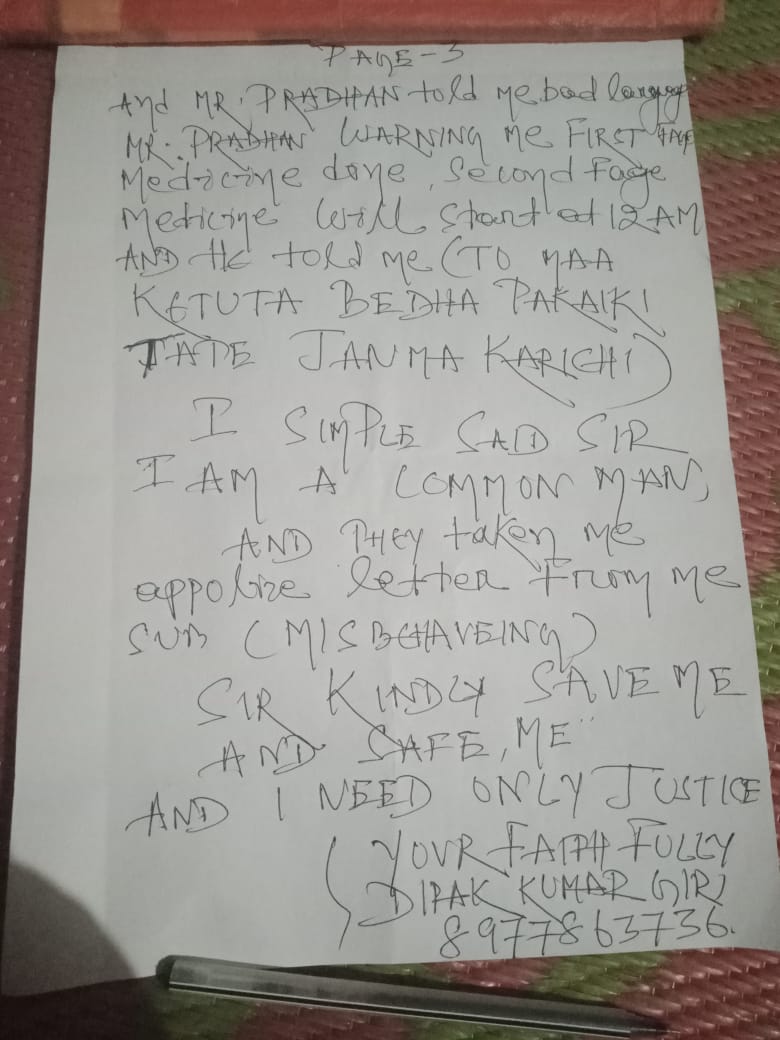 PAGE-3
And MR. PRADHAN told me bad languge
MR. PRADHAN WARNING me FIRST FAGE
Medicine done, Second Fage
Medicine will start at 12 AM
AND He told me (TO MAA
KETUTA BEDHA PAKAIKI
TATE JANMA KARICHI)
I SIMPLE SAID SIR
I AM A COMMON MAN,
AND THEY taken me
appolize letter from me
SUB (MISBEHAVEING)
SIR KINDLY SAVE ME
AND SAFE, ME"
AND I NEED ONLY JUSTICE
YOUR FAITH FULLY
DIPAK KUMAR GIRI
8977863736.